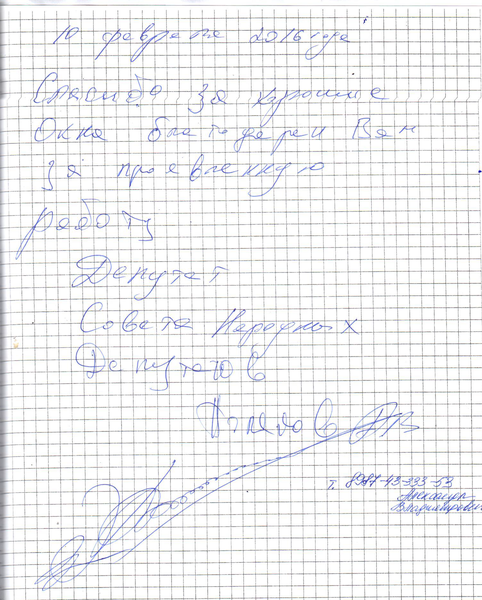 10 февраля 2016 года
Спасибо за хорошие
Окна благодарен Вам
за проявленную
работу
Депутат
Совета Народных
Депутатов
АВ
т. 8987-43-333-53
Александр
Владимирович